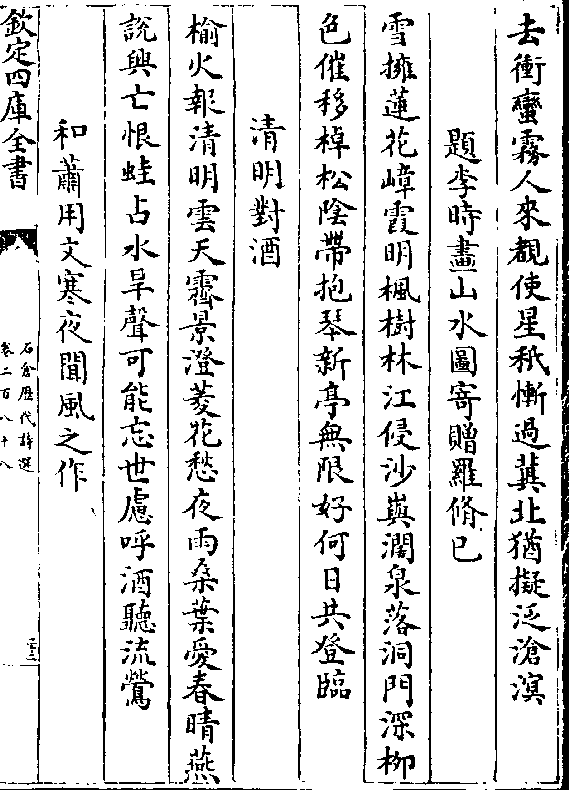 去衝蠻霧人來覩使星秖慚過冀北猶擬泛滄溟
題李時畫山水圖寄贈羅脩己
雪擁蓮花嶂霞明楓樹林江侵沙嶼濶泉落洞門深柳
色催移棹松陰帶抱琴新亭無限好何日共登臨
清明對酒
榆火報清明雲天霽景澄菱花愁夜雨桑葉愛春晴燕
說興亡恨蛙占水旱聲可能忘世慮呼酒聽流鶯
和蕭用文寒夜聞風之作
欽定四庫全書
石倉歷代詩選
卷三百八十八